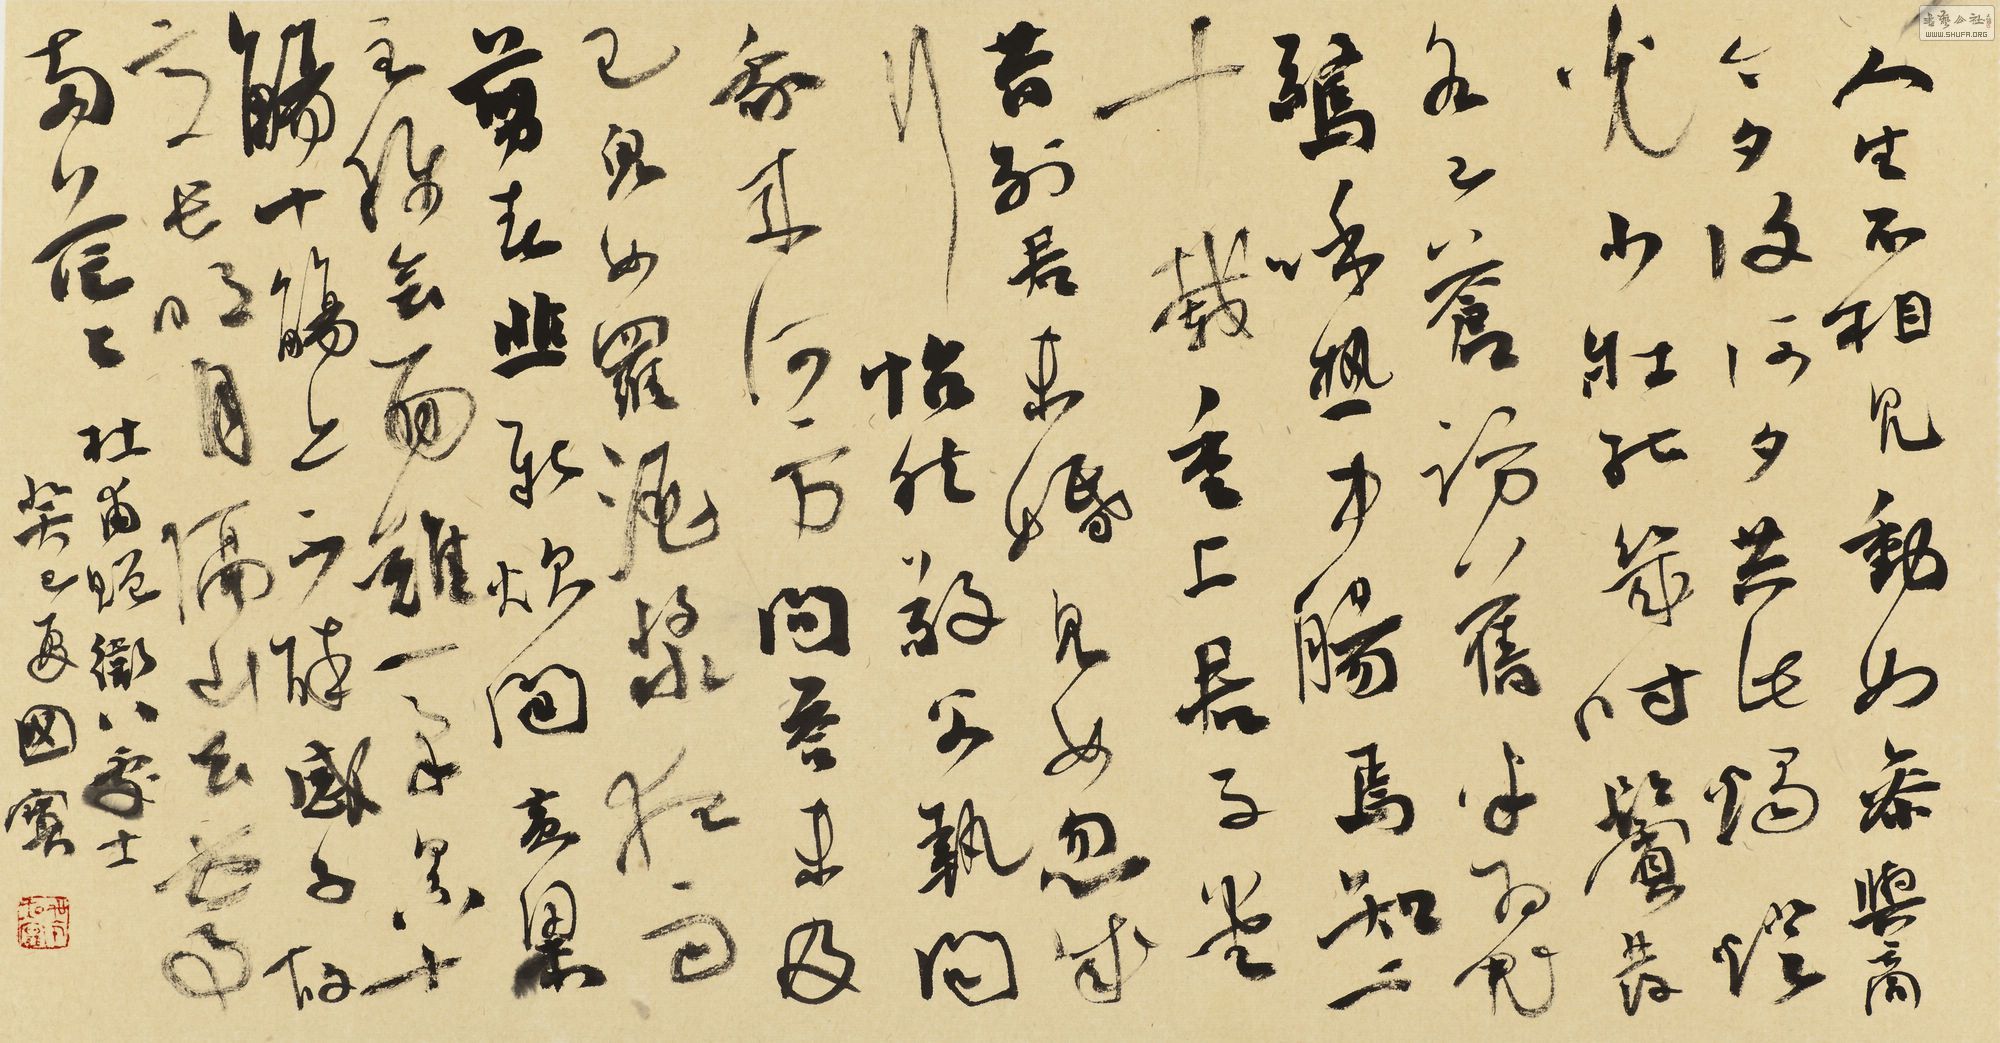 人生不相見動如參與商
今夕復何夕共此燭燈
光少壯能幾時鬢髮
各已蒼訪舊半為鬼
驚呼熱中腸焉知二
十載重上君子堂
昔別君未婚兒女忽成
行怡然敬父執問
我來何方問答未及
已兒女羅酒漿夜雨
剪春韭新炊間黃粱
主稱會面難一舉累十
觴十觴亦不醉感子故
意長明月隔山岳世事
兩茫々
杜甫贈衛八處士
癸巳夏國寶
書藝公社
WWW.SHUFA.ORG